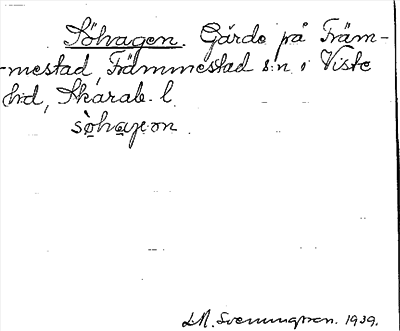 Söhagen. Gärde på Främ-
-mestad, Främmestad s:n i Viste
hd, Skarab. l.
sòhaγen
L.M. Svenungsson. 1939.